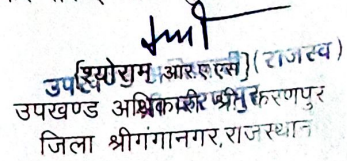 (श्योराम आर.ए.एस) (राजस्व)
उपखण्ड अधिकारी श्रीकरणपुर
जिला श्रीगंगानगर, राजस्थान